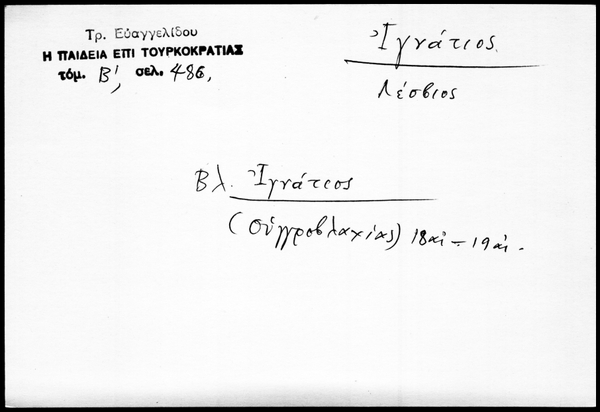 Τρ. Εὐαγγελίδου
Η ΠΑΙΔΕΙΑ ΕΠΙ ΤΟΥΡΚΟΚΡΑΤΙΑΣ
τόμ. Β', σελ. 486,
Ἰγνάτιος
Λέσβιος
Βλ. Ἰγνάτιος
(Οὑγγροβλαχίας) 18αἰ - 19αἰ.